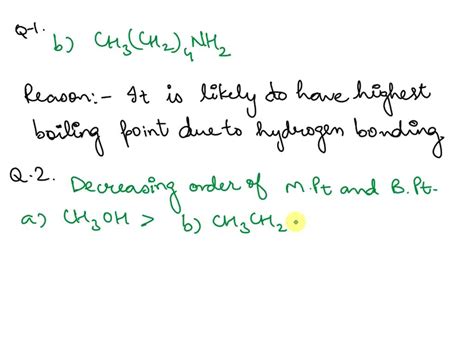 Q-1.
b) CH₃(CH₂)₄NH₂
Reason:- It is likely to have highest
boiling point due to hydrogen bonding.
Q.2. Decreasing order of M.Pt and B.Pt-
a) CH₃OH > b) CH₃CH₂